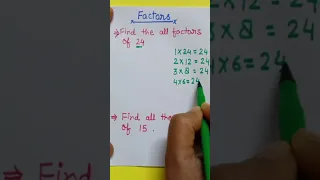 Factors
⇒ Find the all factors
of 24
1×24=24
2×12=24
3×8=24
4×6=24
⇒ Find all the
of 15.
×12=24
×8=24
4×6=24